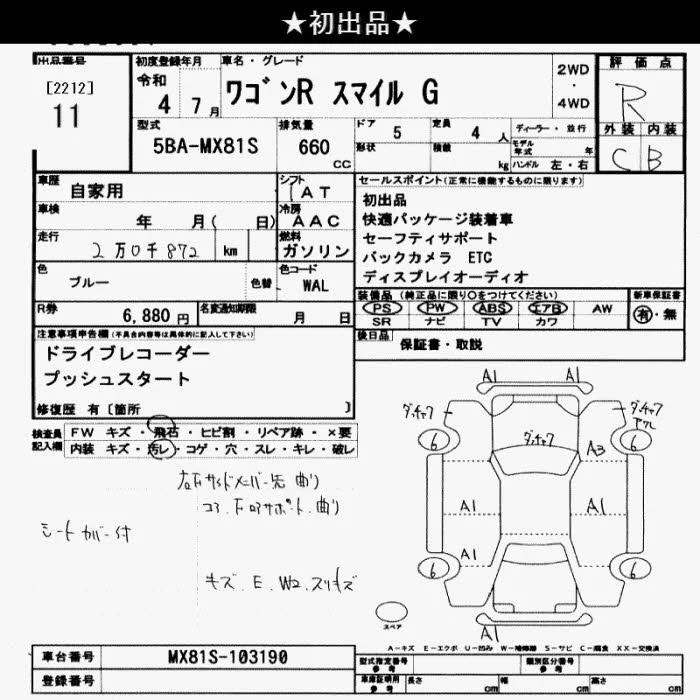 ★初出品★
出品番号
[2212]
11
初度登録年月
令和
4 7月
車名・グレード
ワゴンR スマイル G
2WD
・
4WD
評価点
R
外装 内装
C B
型式
5BA-MX81S
排気量
660
CC
ドア 5
定員 4 人
形状
積載 kg
ディーラー・並行
モデル年式 年
ハンドル 左・右
車歴
自家用
シフト
AT
車検
年 月( 日)
冷房
AAC
走行
2万0千872 km
燃料
ガソリン
色
ブルー
色替
色コード
WAL
R券
6,880円
名変通知期限
月 日
セールスポイント(正常に機能するものに限ります)
初出品
快適パッケージ装着車
セーフティサポート
バックカメラ ETC
ディスプレイオーディオ
装備品 (純正品に限り○をつけてください)
PS PW ABS エアB AW
SR ナビ TV カワ
新車保証書
有・無
後日品
保証書・取説
注意事項申告欄(不具合内容等は具体的に記入して下さい)
ドライブレコーダー
プッシュスタート
修復歴 有〔箇所 〕
検査員記入欄
FW キズ・飛石・ヒビ割・リペア跡・×要
内装 キズ・汚レ・コゲ・穴・スレ・キレ・破レ
左右サイドメンバー先 曲り
コアロアサポート 曲り
シートカバー付
キズ、E、W2、スリキズ
A1 A1
ダッチャク
ダッチャク
ダッチャク
アクレ
6 6
A3
A1 A1
A1
6 6
A1
スペア
A－キズ E－エクボ U－凹み W－補修跡 S－サビ C－腐食 XX－交換済
車台番号
MX81S-103190
登録番号
型式指定番号
参考
類別区分番号
参考
車庫証明用
参考
長さ cm
幅 cm
高さ cm